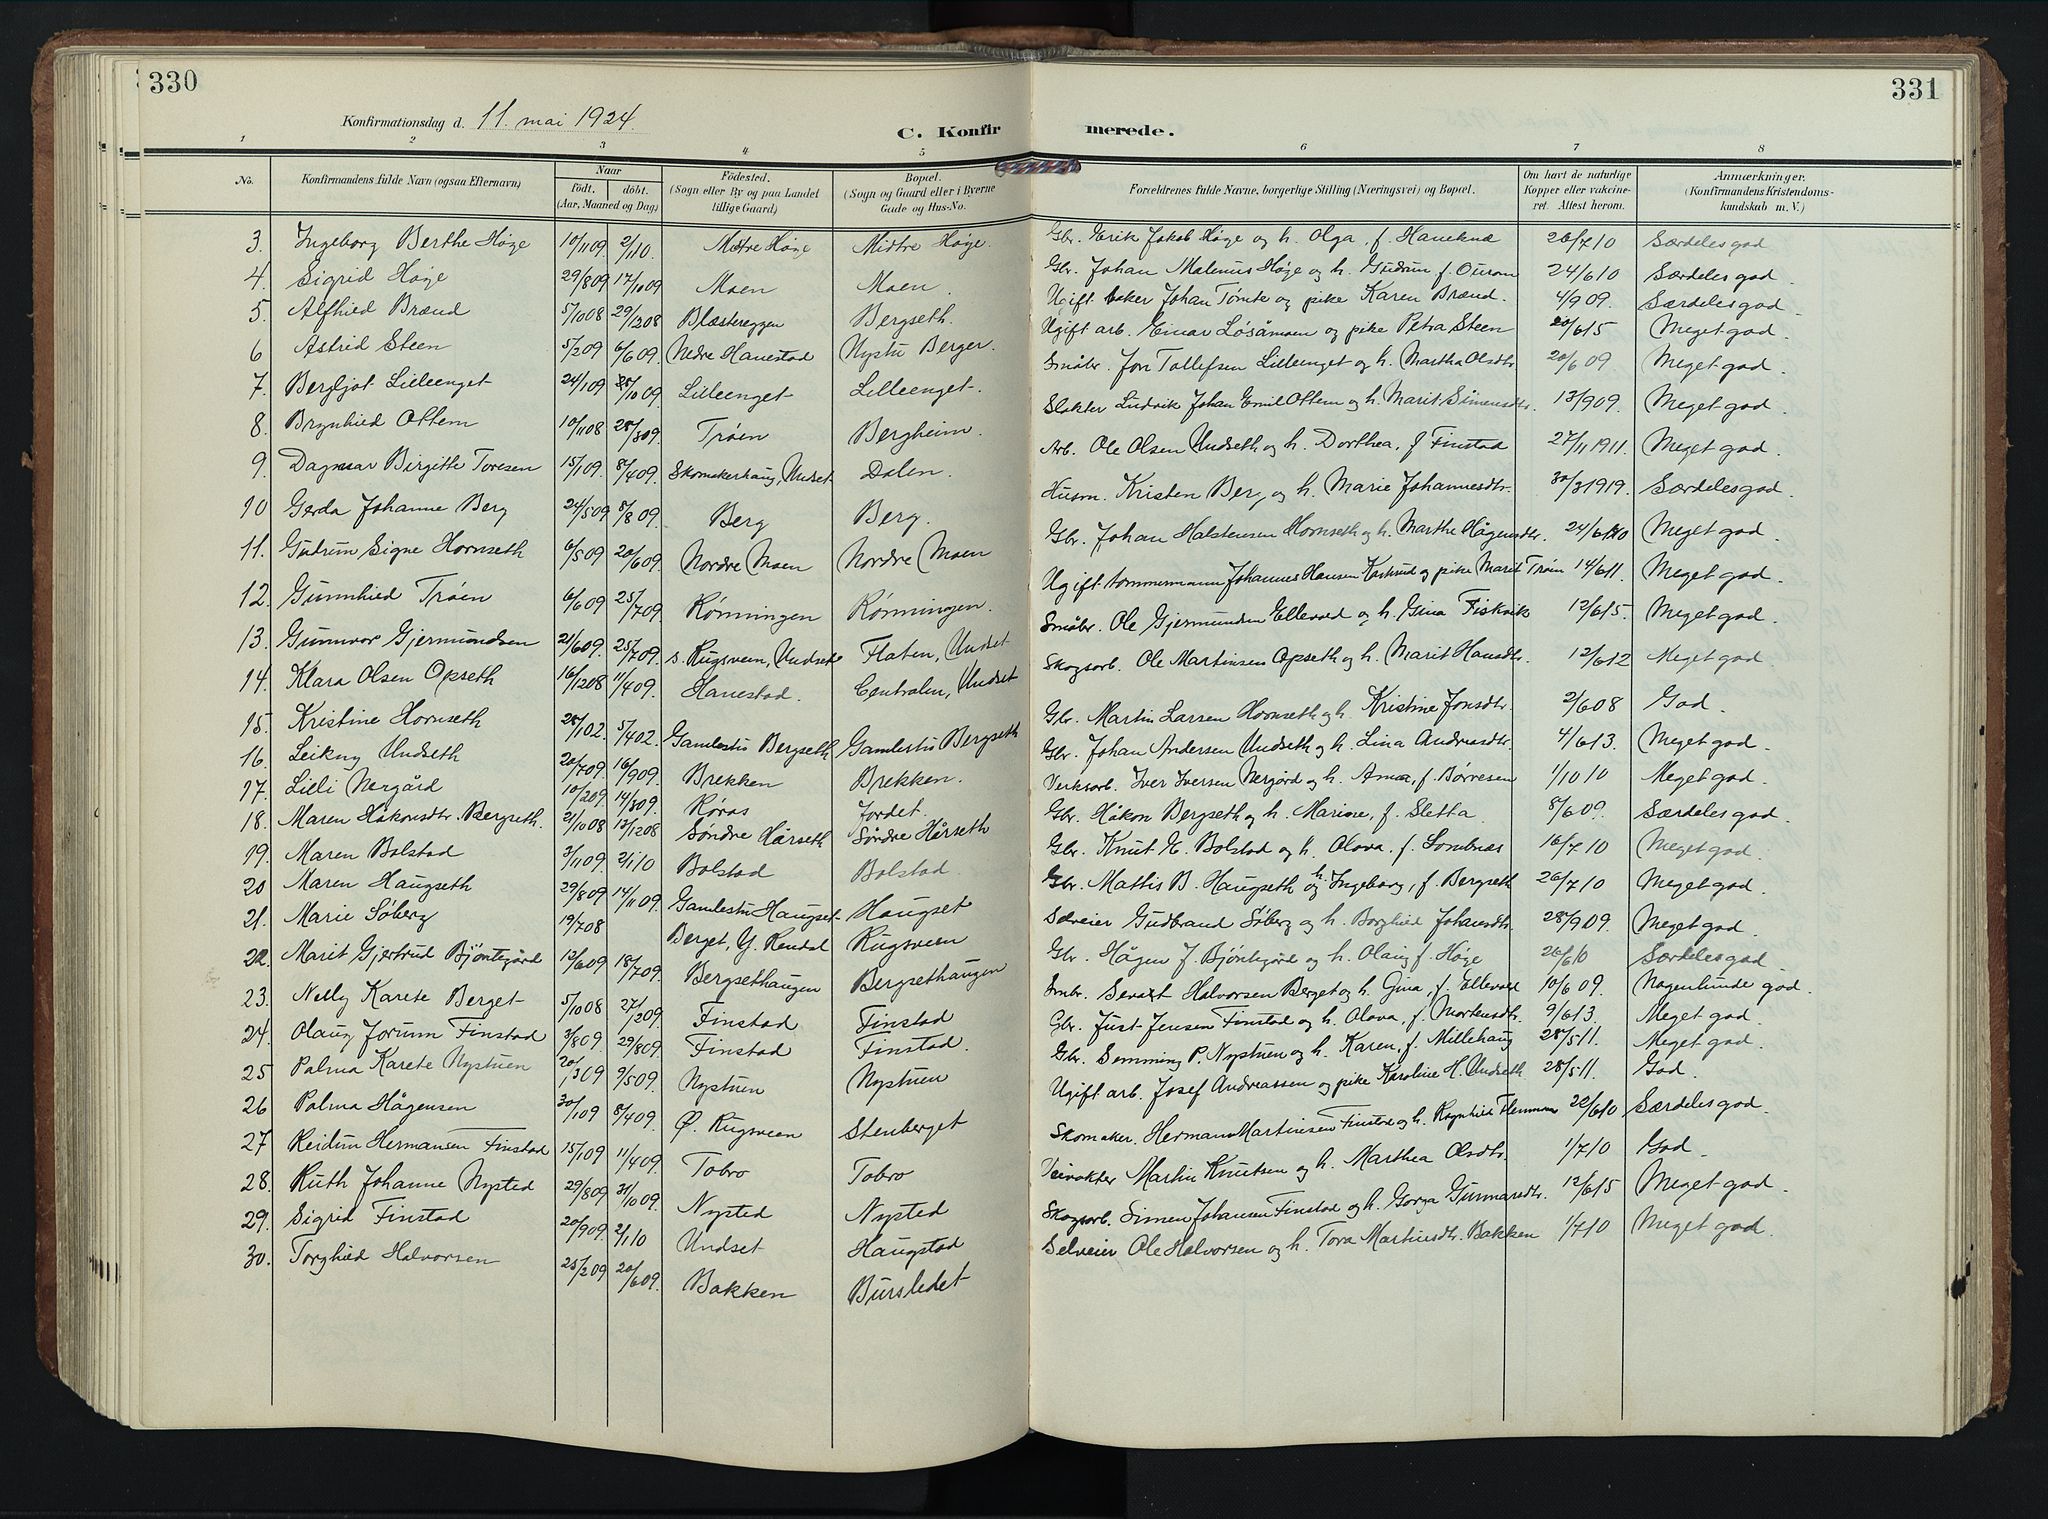 330
331
Konfirmationsdag d. 11. mai 1924.
C. Konfir merede.
1 2 3 4 5 6 7 8
No. Konfirmandens fulde Navn (ogsaa Efternavn) Naar födt. döbt. (Aar, Maaned og Dag) Födested. (Sogn eller By og paa Landet tillige Gaard) Bopæl. (Sogn og Gaard eller i Byerne Gade og Hus-No. Forældrenes fulde Navne, borgerlige Stilling (Næringsvei) og Bopæl. Om havt de naturlige Kopper eller vakcineret. Attest herom. Anmærkninger. (Konfirmandens Kristendomskundskab m. V.)
3. Ingeborg Berthe Høye 10/11 09 2/1 10 Midtre Høye Midtre Høye. Gbr. Erik Jakob Høye og h. Olga, f. Haneknæ 26/7 10 Særdeles god
4. Sigrid Høye 29/8 09 17/10 09 Moen Moen. Gbr. Johan Malenus Høye og h. Gudrun f. 24/6 10 Særdeles god.
5. Alfhild Brænd 5/10 08 29/12 08 Blæstereggen Bergseth. Ugift baker Johan Tomte og pike Karen Brænd. 4/9 09. Særdeles god.
6 Astrid Steen 5/2 09 6/6 09. Nedre Hanestad Nystu Berger. Ugift arb. Einar Løsåmoen og pike Petra Steen 20/6 15 Meget god.
7. Bergljot Lilleenget 24/1 09 /10 09. Lilleenget Lilleenget. Småbr. Jon Tollefsen Lilleenget og h. Martha Olsdtr. 20/6 09 Meget god.
8. Brynhild Ottem 10/11 08 28/3 09. Trøen Bergheim. Slakter Ludvik Johan Emil Ottem og h. Marit Simensdtr. 13/9 09. Meget god.
9. Dagmar Birgitte Toresen 15/1 09 8/4 09. Skomakerhaug, Undset Dalen. Arb. Ole Olsen Undseth og h. Dorthea, f. Finstad 27/11 1911. Meget god.
10 Gerda Johanne Berg 24/5 09 8/8 09. Berg Berg. Husm. Kristen Berg og h. Marie Johannesdtr. 30/3 1919. Særdeles god.
11. Gudrun Signe Hornseth 6/5 09 20/6 09. Nordre Moen Nordre Moen Gbr. Johan Halstensen Hornseth og h. Marthe Hågensdtr. 24/6 10 Meget god.
12. Gunnhild Trøen 6/6 09 25/7 09. Rønningen Rønningen. Ugift tømmermann Johannes Hansen og pike Marit Trøen 14/6 11. Meget god.
13. Gunnvor Gjermundsen 21/6 09. 25/7 09. s. Rugsveen, Undset Flaten, Undset Småbr. Ole Gjermundsen Ellevold og h. Gina Fiskvik 12/6 15. Meget god.
14. Klara Olsen Opseth 16/12 08 11/4 09. Hanestad. Centralen, Undset Skogsarb. Ole Martinsen Opseth og h. Marit Hansdtr. 12/6 12 Meget god
15. Kristine Hornseth 28/1 02. 5/4 02. Gamlestu Bergseth Gamlestu Bergseth Gbr. Martin Larsen Hornseth og h. Kristine Jonsdtr. 2/6 08 God.
16. Leikny Undseth 20/7 09. 16/9 09. Brekken Brekken. Gbr. Johan Andersen Undseth og h. Lina Andreasdtr. 4/6 13. Meget god.
17. Lilli Nergård 10/2 09. 14/3 09. Røros Jordet. Verksarb. Iver Iversen Nergård og h. Anna, f. Børresen 1/10 10 Meget god.
18. Maren Håkonsdtr. Bergseth. 21/10 08 13/12 08 Søndre Hårseth Søndre Hårseth Gbr. Håkon Bergseth og h. Marine, f. Sletta 8/6 09. Særdeles god.
19. Maren Bolstad 3/11 09. 2/1 10 Bolstad Bolstad. Gbr. Knut E. Bolstad og h. Olava, f. Lombnæs 16/7 10 Meget god.
20 Maren Haugseth 29/8 09 14/11 09. Gamlestu Haugset Haugset Gbr. Mattis B. Haugseth og h. Ingeborg, f. Bergseth 26/7 10 Meget god.
21. Marie Søberg 19/7 08 Berget, Y. Rendal Rugsveen Selveier Gudbrand Søberg og h. Borghild Johansdtr. 28/9 09. Meget god.
22. Marit Gjertrud Bjöntegård 12/6 09 18/7 09. Bergsethaugen Bergsethaugen Gbr. Hågen J. Bjöntegård og h. Olaug f. Høye 20/6 10 Særdeles god
23. Nelly Karete Berget 5/10 08 27/12 09. Finstad Finstad Småbr. Halvorsen Berget og h. Gina, f. Ellevold 10/6 09. Nogenlunde god.
24. Olaug Jorunn Finstad 3/8 09. 29/8 09. Finstad Finstad. Gbr. Just Jensen Finstad og h. Olava, f. Mortensdtr. 9/6 13. Meget god.
25 Palma Karete Nystuen 20/1 309 9/5 09. Nystuen Nystuen Gbr. Semming P. Nystuen og h. Karen, f. Millehaug 28/5 11. Meget god.
26 Palma Hågensen 30/1 09 8/4 09. Ø. Rugsveen Stenberget Ugift arb. Josef Andreassen og pike Karoline H. Undseth 28/5 11. God.
27 Reidun Hermansen Finstad 15/1 09 11/4 09. Tobro Tobro Skomaker. Herman Martinsen Finstad og h. Ragnhild 22/6 10 Særdeles god.
28. Ruth Johanne Nysted 29/8 09 31/10 09. Nysted Nysted Veivokter Martin Knutsen og h. Marthea Olsdtr. 1/7 10 God.
29. Sigrid Finstad 20/9 09. 2/1 10 Undset Haugstad Skogsarb. Simen Johansen Finstad og h. Gorga Gunnarsdtr. 12/6 15 Meget god.
30. Torghild Halvorsen 25/2 09 20/6 09. Bakken Bursledet Selveier Ole Halvorsen og h. Tora Martinsdtr. Bakken 1/7 10 Meget god.